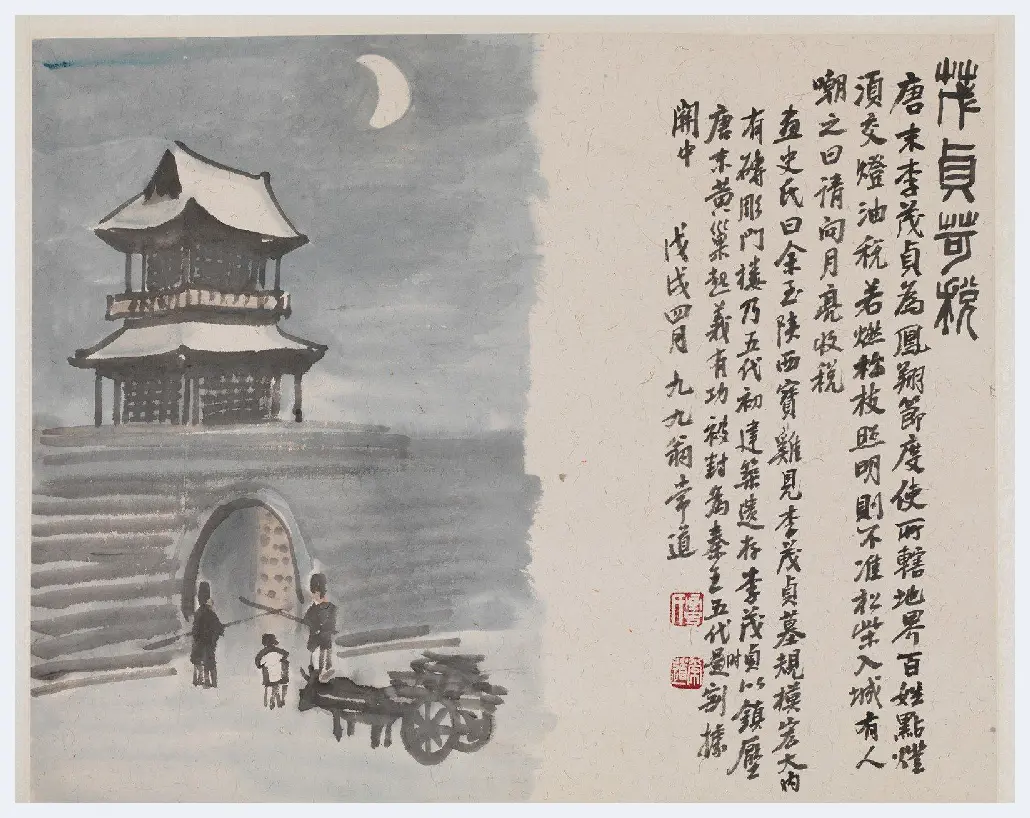 茂貞苛稅
唐末李茂貞為鳳翔節度使所轄地界百姓點燈
須交燈油稅若燃松枝照明則不准松柴入城有人
嘲之曰請向月亮收稅
畫史氏曰余至陝西寶雞見李茂貞墓規模宏大內
有磚彫門樓乃五代初建築遺存李茂貞以鎮壓
唐末黃巢起義有功被封為秦王五代時割據
關中 戊戌四月 九九翁常道